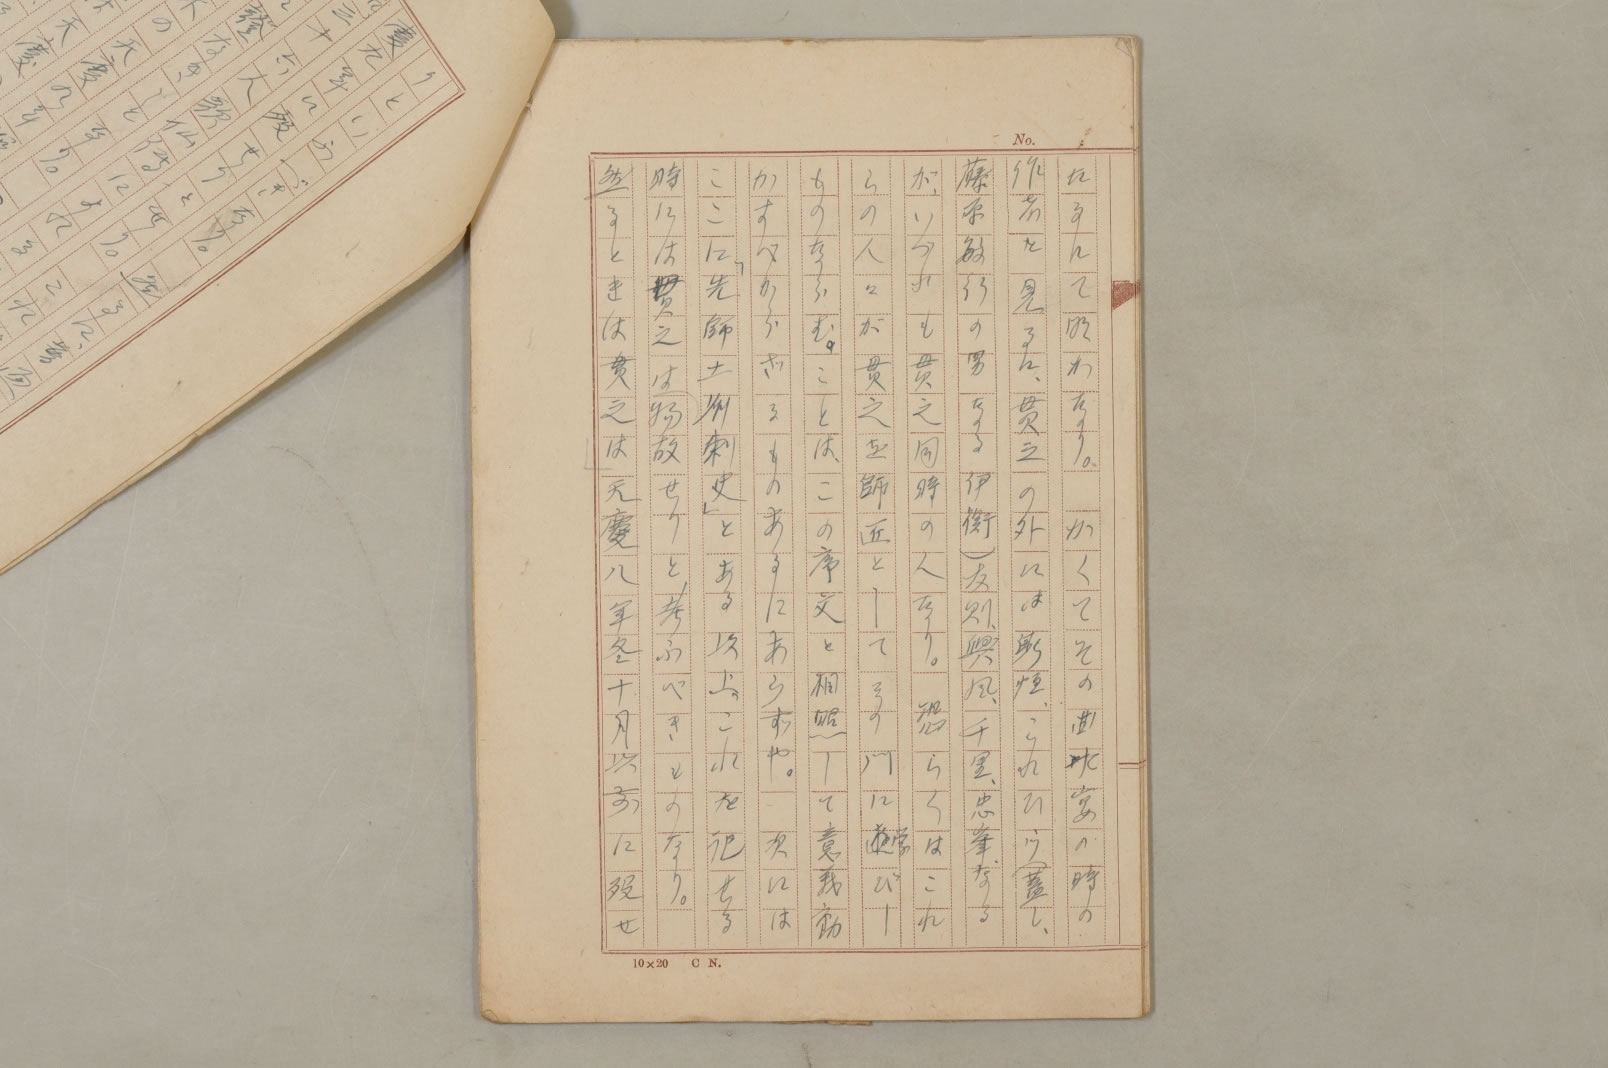 No.
たるにて明かなり。 かくてその曲水宴の時の
作者を見るに、貫之の外には躬恒、これひら(蓋し、
藤原敏行の男なる伊衡)友則、興風、千里、忠岑なる
が、いづれも貫之同時の人なり。 恐らくはこれ
らの人々が貫之を師匠としてその門に遊学びし
ものならむ。ことは、この序文と相照して意義動
かすべからざるものあるにあらずや。 次には
ここに「先師土州刺史」とある以上。これを記せる
時には貫之は物故せりと考ふべきものなり。
然るときは貫之は天慶八年冬十月以前に歿せ
10×20 C N.
りといふべきなり。
慶九年に歿せりとせり。
三十六人歌仙伝に
なきことなり。
の天慶九年
天慶